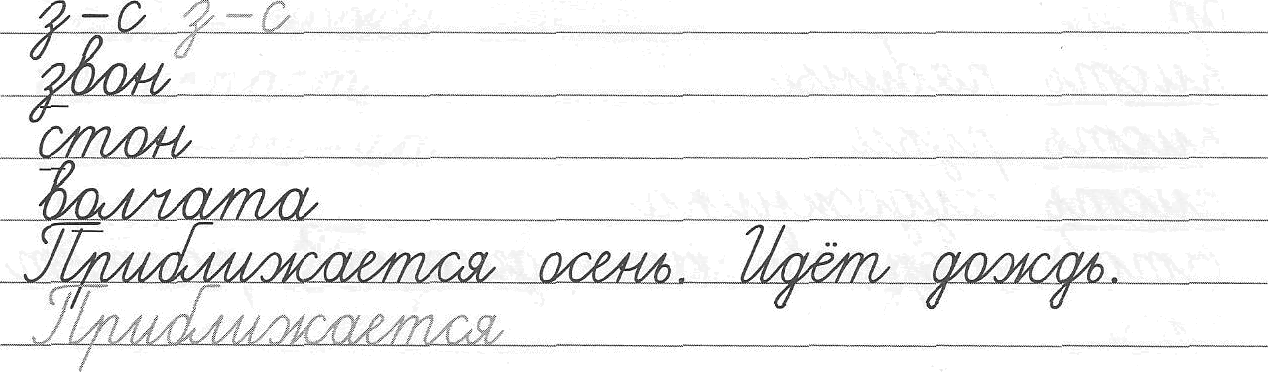 з – с з – с
звон
стон
волчата
Приближается осень. Идёт дождь.
Приближается